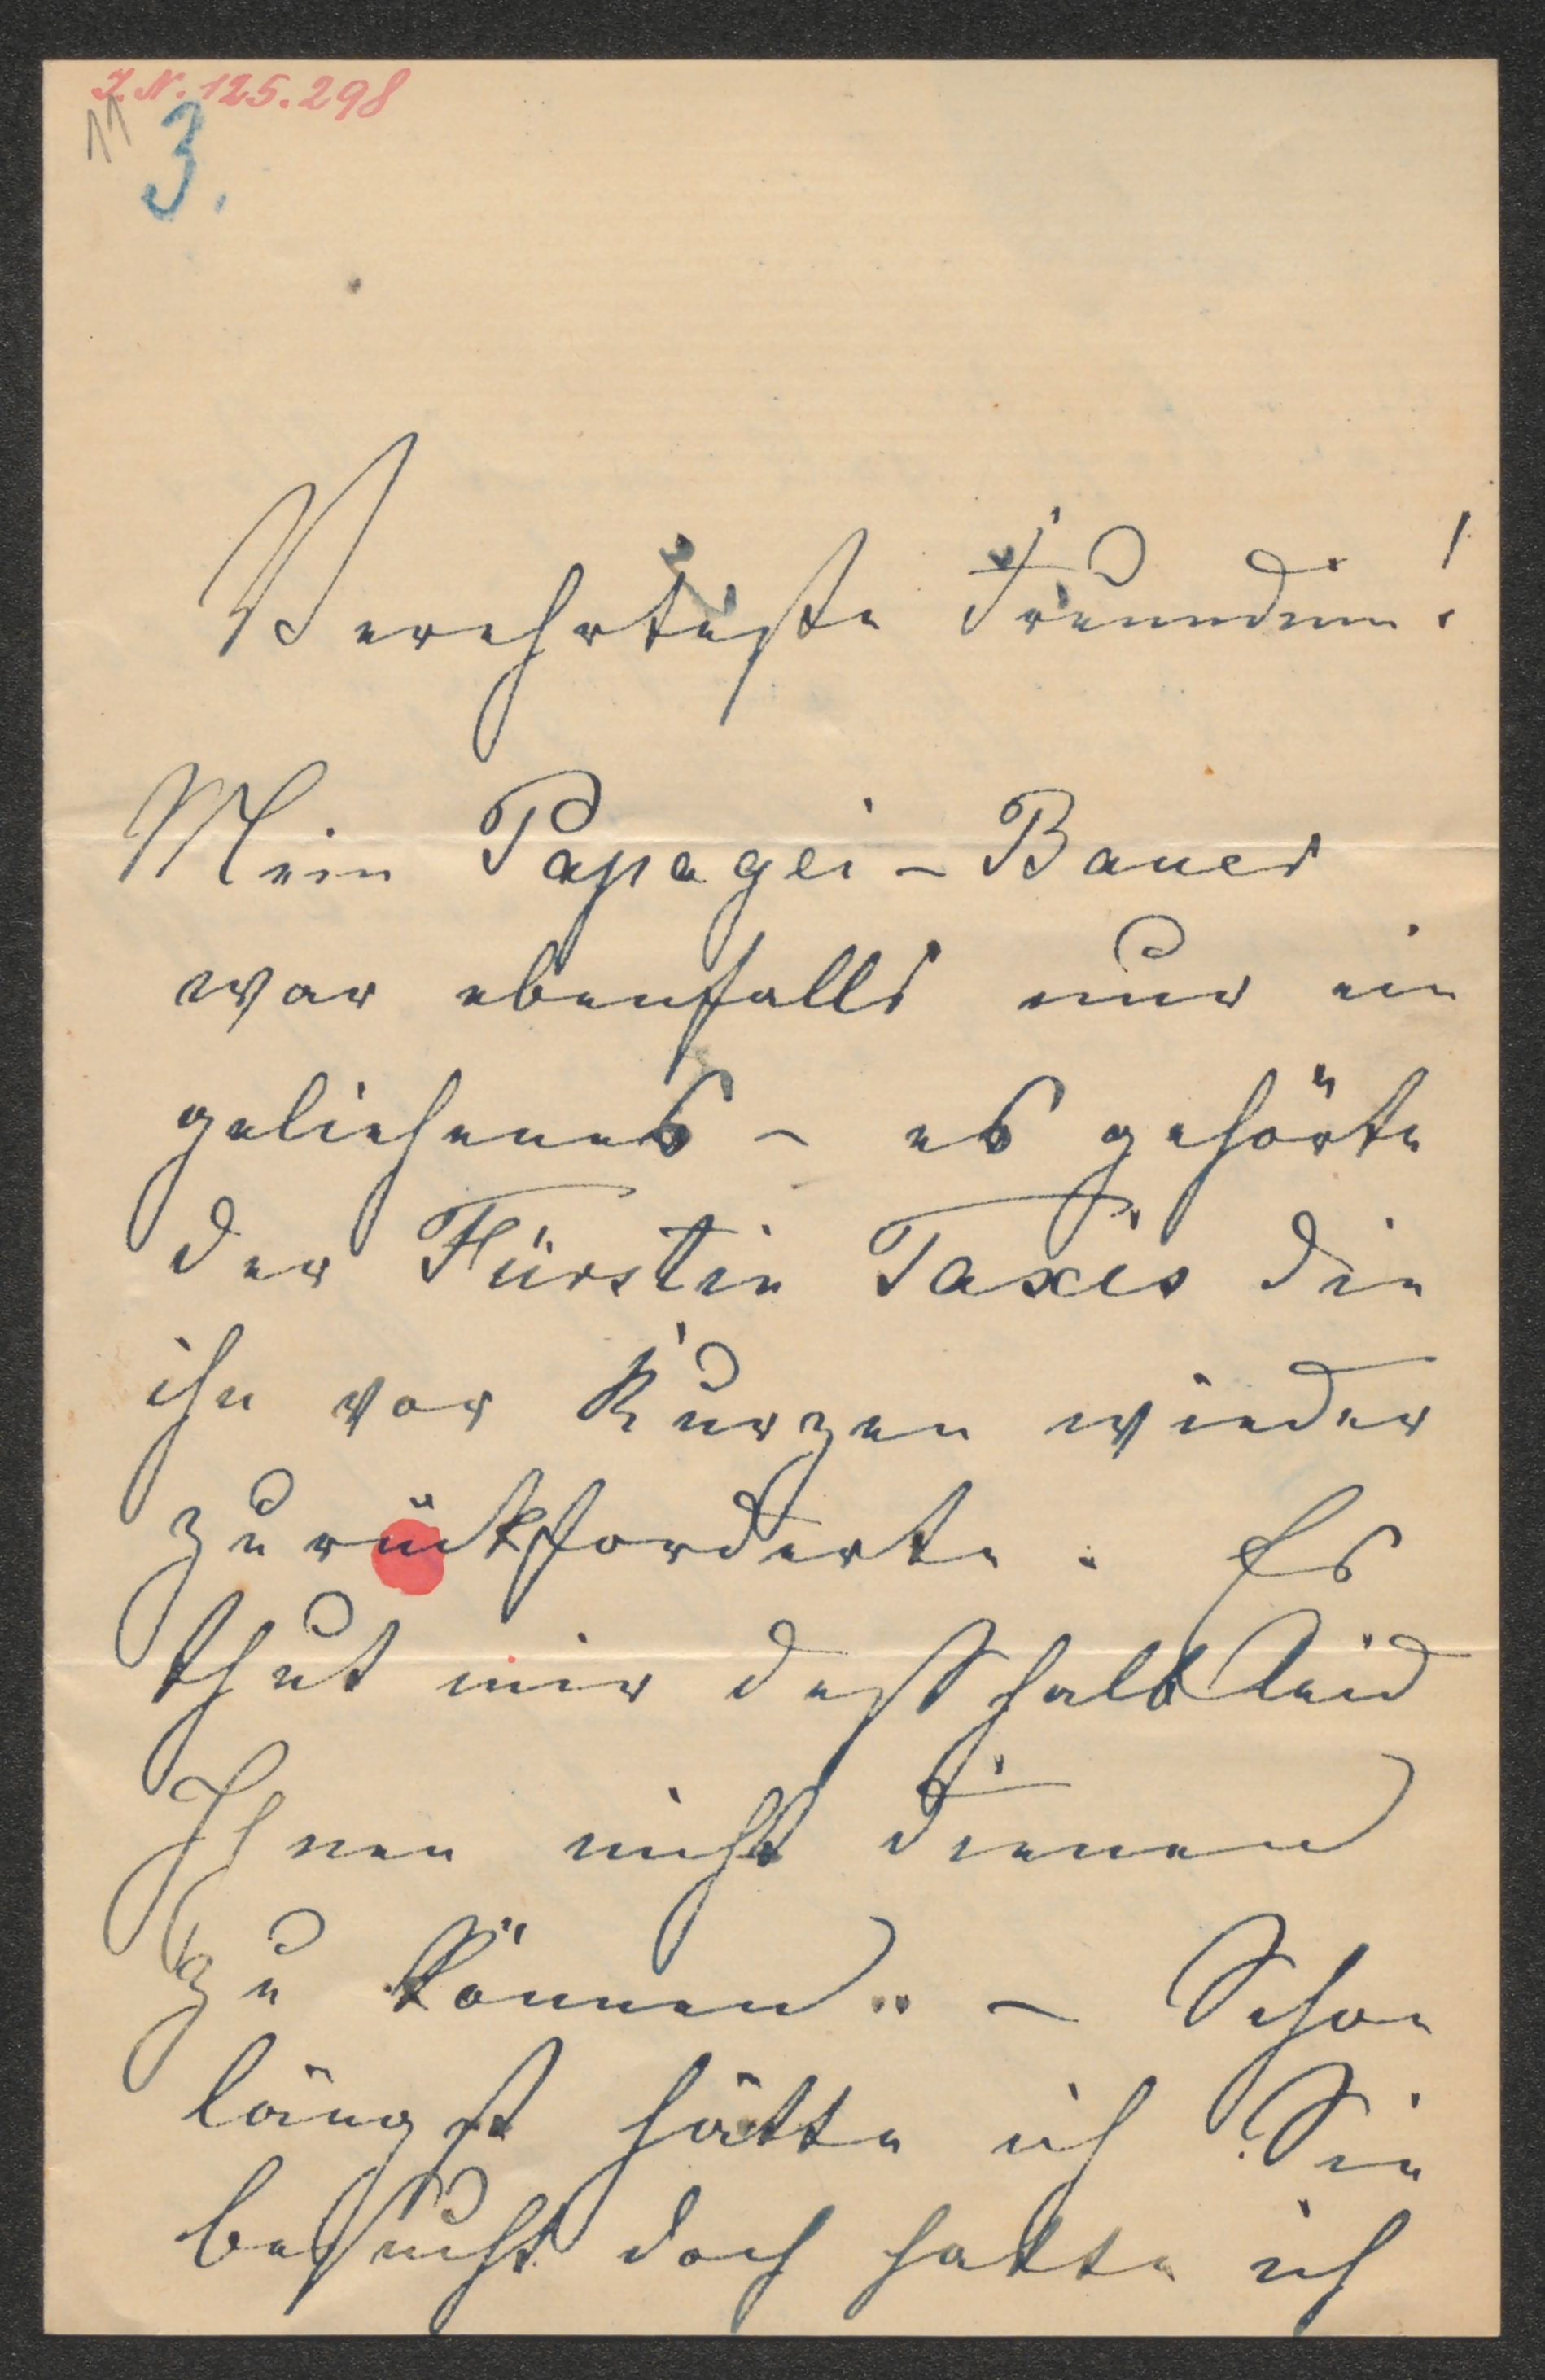 I. N. 125.298
11
3.
Verehrteste Freundinn!
Mein Papagei-Bauer
war ebenfalls nur ein
geliehenes – es gehörte
der Fürstin Taxis die
ihn vor Kurzen wieder
zurückforderte. Es
thut mir deßhalb leid
Ihnen nicht dienen
zu können. – Schon
längst hätte ich Sie
besucht doch hatte ich